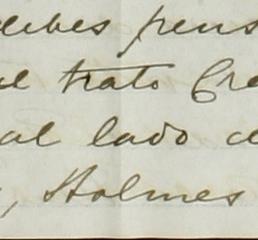 debes pens
el trato Cre
al lado de
, Holmes